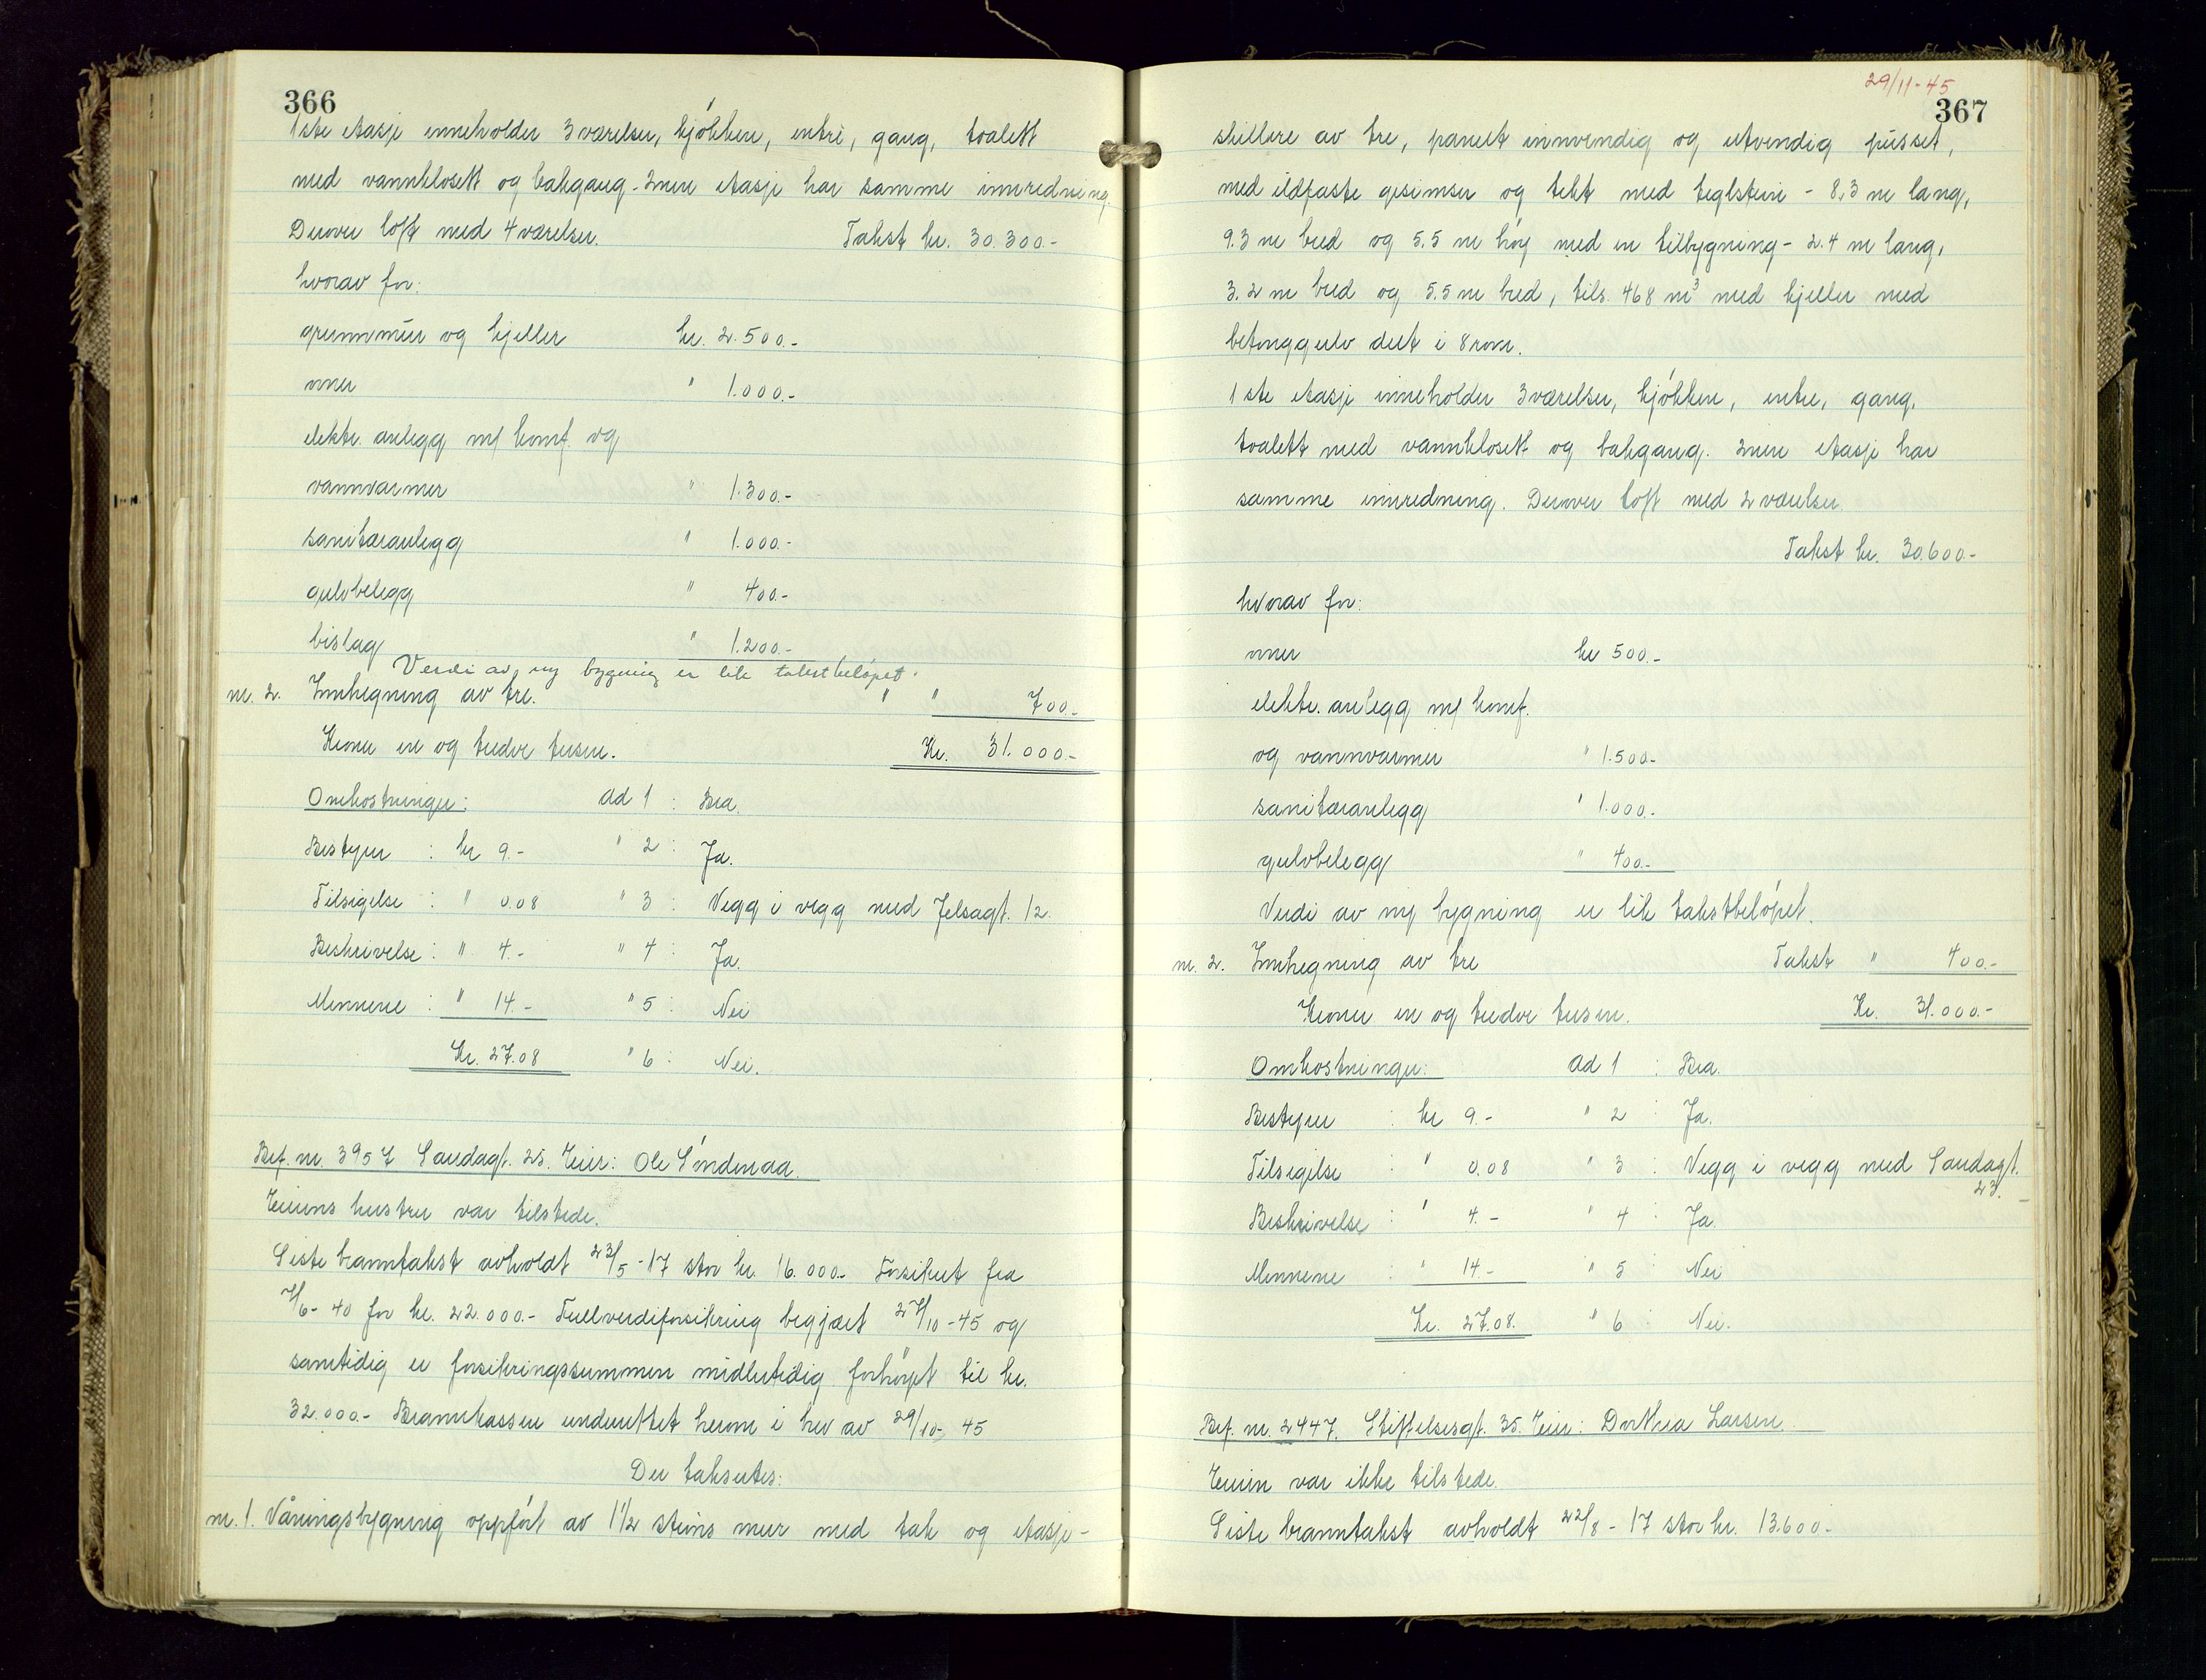 366
1ste etasje inneholder 3 værelser, kjøkken, entrè, gang, toalett
med vannklosett og bakgang - 2nen etasje har samme innredning.
Derover loft med 4 værelser. Takst kr. 30.300.-
hvorav for:
grunnmur og kjeller kr. 2.500.-
ovner " 1.000.-
elektr. anlegg m/ komf. og
vannvarmer " 1.300.-
sanitæranlegg " 1.000.-
gulvbelegg " 400.-
bislag " 1.200.-
Verdi av ny bygning er lik takstbeløpet.
nr. 2. Innhegning av tre. " " 700.-
Kroner en og tredve tusen. Kr. 31.000.-
Omkostninger: Ad 1 : Bra.
Bestyrer : kr 9.- " 2 : Ja.
Tilsigelse : " 0.08 " 3 : Vegg i vegg med Jelsagt. 12.
Beskrivelse : " 4.- " 4 : Ja.
Mennene : " 14.- " 5 : Nei
Kr. 27.08 " 6 : Nei.
Bef. nr. 3957 Saudagt. 25. Eier: Ole Søndenaa.
Eierens hustru var tilstede.
Siste branntakst avholdt 23/5 - 17 stor kr. 16.000.- Forsikret fra
7/6 - 40 for kr. 22.000.- Fullverdiforsikring begjært 27/10 - 45 og
samtidig er forsikringssummen midlertidig forhøyet til kr.
32.000.- Brannkassen underrettet herom i brev av 29/10- 45
Der takseres:
nr. 1. Våningsbygning oppført av 1 1/2 steins mur med tak og etasje-
29/11-45
367
skillere av tre, panelt innvendig og utvendig pusset,
med ildfaste gesimser og tekt med teglstein - 8,3 m lang,
9.3 m bred og 5.5 m høy med en tilbygning - 2.4 m lang,
3.2 m bred og 5.5 m bred, tils. 468 m³ med kjeller med
betonggulv delt i 8 rom.
1 ste etasje inneholder 3 værelser, kjøkken, entre, gang,
toalett med vannklosett og bakgang. 2nen etasje har
samme innredning. Derover loft med 2 værelser
Takst kr. 30.600.-
hvorav for:
ovner kr 500.-
elektr. anlegg m/ komf.
og vannvarmer " 1.500.-
sanitæranlegg " 1.000.-
gulvbelegg " 400.-
Verdi av ny bygning er lik takstbeløpet.
nr. 2. Innhegning av tre Takst " 400.-
Kroner en og tredve tusen. Kr. 31.000.-
Omkostninger: Ad 1 : Bra.
Bestyrer : kr 9.- " 2 : Ja.
Tilsigelse : " 0.08 " 3 : Vegg i vegg med Saudagt.
23.
Beskrivelse : " 4.- " 4 : Ja.
Mennene : " 14.- " 5 : Nei
Kr. 27.08. " 6 : Nei.
Bef. nr. 2447. Stiftelsesgt. 35. Eier: Dorthea Larsen.
Eieren var ikke tilstede.
Siste branntakst avholdt 22/8 - 17 stor kr. 13.600.-